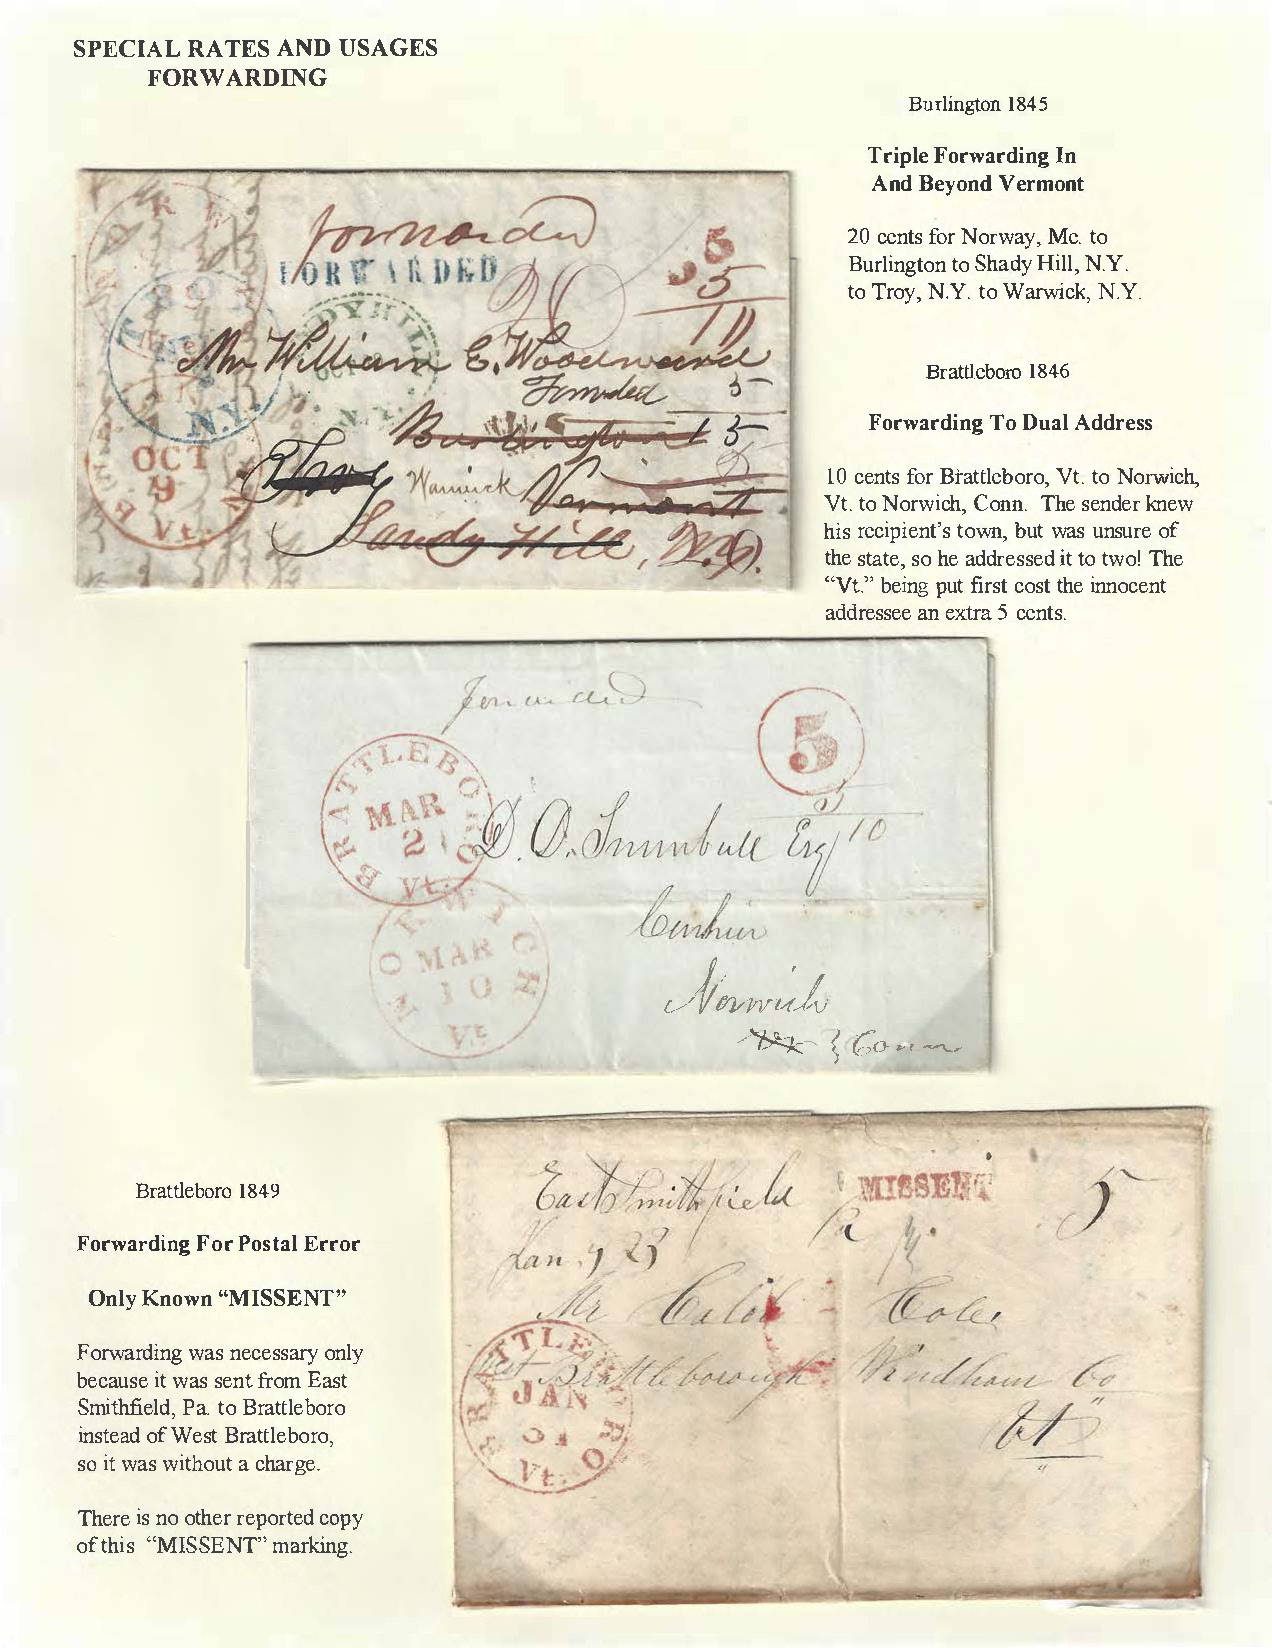 SPECIAL RATES AND USAGES
FORWARDING
Burlington 1845
Triple Forwarding In
And Beyond Vermont
20 cents for Norway, Me. to
Burlington to Shady Hill, N.Y.
to Troy, N.Y. to Warwick, N.Y.
forwarded
FORWARDED
20
5
5
5
10
DY HILL
N.Y.
Mr William E. Woodward
Forwded 5
Burlington 15
Troy Warwick Vermont
Sandy Hill, N.Y.
N.Y.
OCT
9
Vt.
Brattleboro 1846
Forwarding To Dual Address
10 cents for Brattleboro, Vt. to Norwich,
Vt. to Norwich, Conn. The sender knew
his recipient's town, but was unsure of
the state, so he addressed it to two! The
"Vt." being put first cost the innocent
addressee an extra 5 cents.
forwarded
5
5
10
BRATTLEBORO
MAR
21
Vt.
D. O. Trumbull Esq
Cashier
Norwich
Vt & Conn
NORWICH
MAR
10
Vt
Brattleboro 1849
Forwarding For Postal Error
Only Known "MISSENT"
Forwarding was necessary only
because it was sent from East
Smithfield, Pa. to Brattleboro
instead of West Brattleboro,
so it was without a charge.
There is no other reported copy
of this "MISSENT" marking.
East Smithfield
Pa
MISSENT
5
Jan. 23
Mr Caleb Cole
West Brattleborough Windham Co
Vt
BRATTLEBORO
JAN
31
Vt.